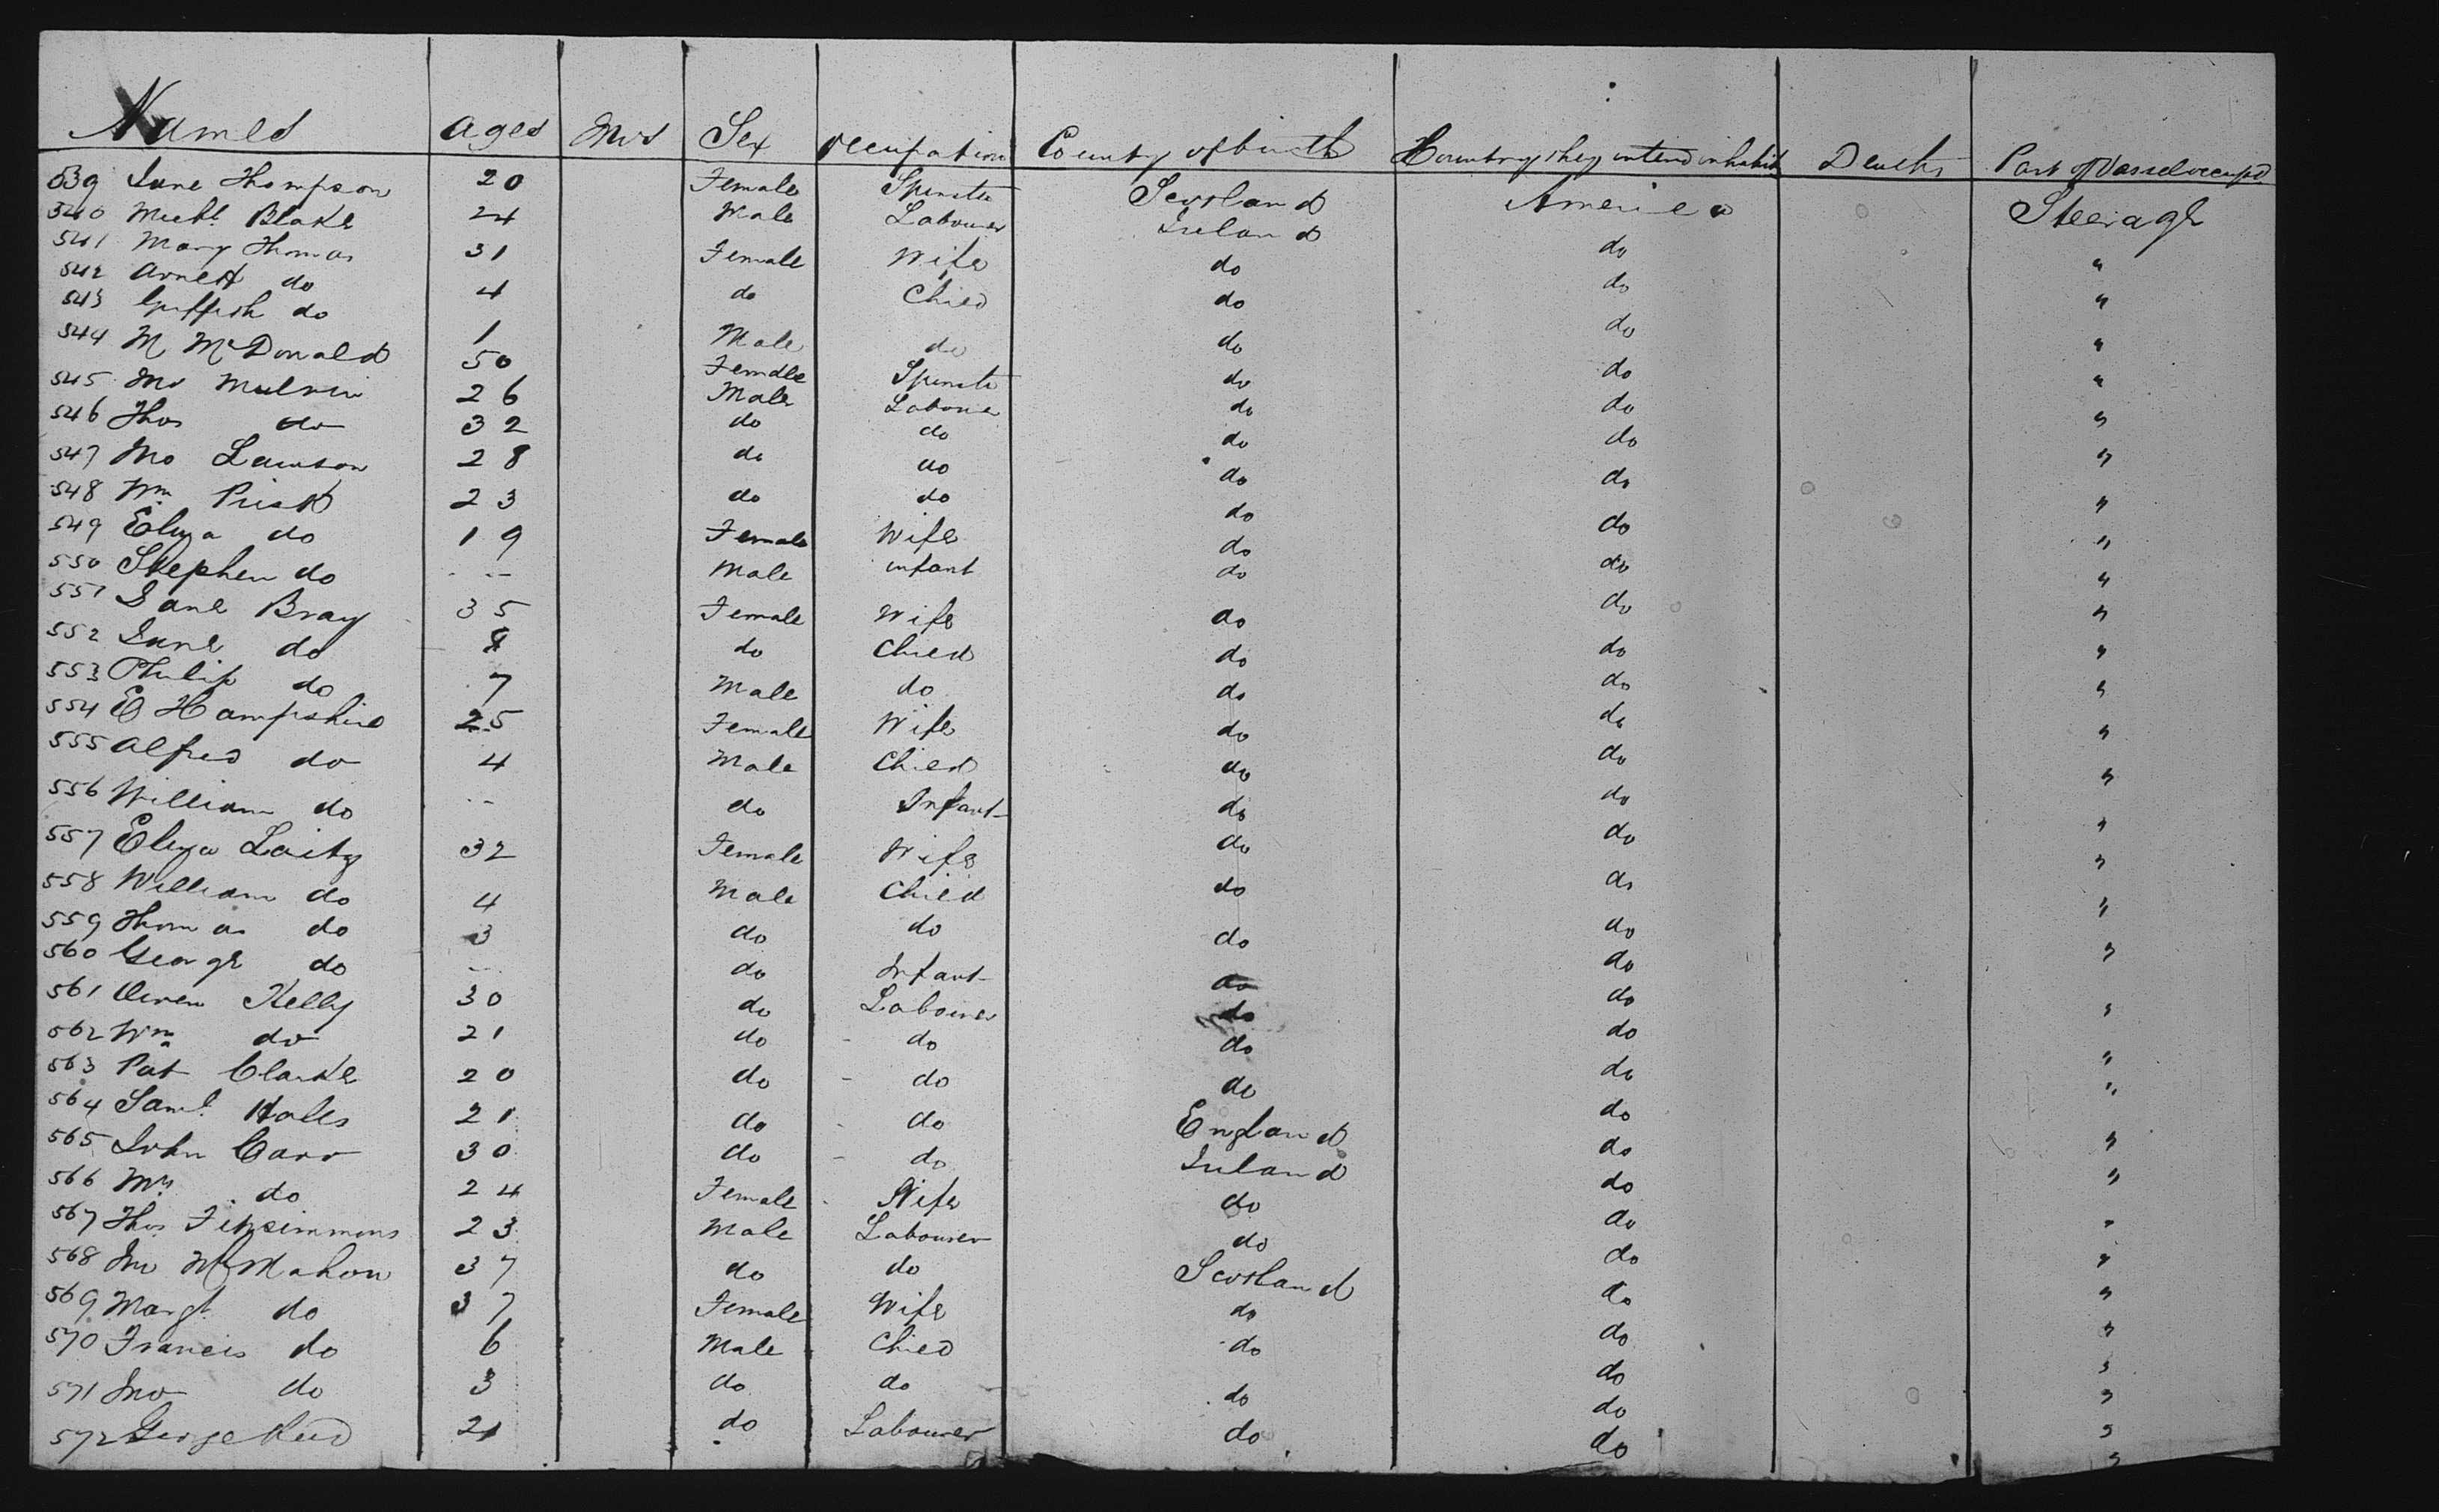 Names Ages Mos Sex Occupation Country of birth Country they intend inhabit Deaths Part of Vessel occupd
539 Jane Thompson 20 Female Spinster Scotland America Steerage
540 Michl. Blake 24 Male Labourer Ireland do "
541 Mary Thomas 31 Female Wife do do "
542 do 4 do Child do do "
543 Griffith do 1 Male do do do "
544 M McDonald 50 Female Spinster do do "
545 Jno Mulvin 26 Male Labourer do do "
546 Thos do 32 do do do do "
547 Jno Lawson 28 do do do do "
548 Wm Prisk 23 do do do do "
549 Eliza do 19 Female Wife do do "
550 Stephen do -- Male infant do do "
551 Jane Bray 35 Female Wife do do "
552 Jane do 8 do Child do do "
553 Philip do 7 Male do do do "
554 E Hampshire 25 Female Wife do do "
555 Alfred do 4 Male Child do do "
556 William do -- do Infant do do "
557 Eliza Laity 32 Female Wife do do "
558 William do 4 Male Child do do "
559 Thomas do 3 do do do do "
560 George do -- do Infant do do "
561 Owen Kelly 30 do Labourer do do "
562 Wm do 21 do do do do "
563 Pat Clarke 20 do do do do "
564 Saml. Hales 21 do do England do "
565 John Carr 30 do do Ireland do "
566 Mrs do 24 Female Wife do do "
567 Thos Fitzsimmons 23 Male Labourer do do "
568 Jno McMahon 37 do do Scotland do "
569 Margt. do 37 Female Wife do do "
570 Francis do 6 Male Child do do "
571 Jno do 3 do do do do "
572 George Reid 21 do Labourer do do "